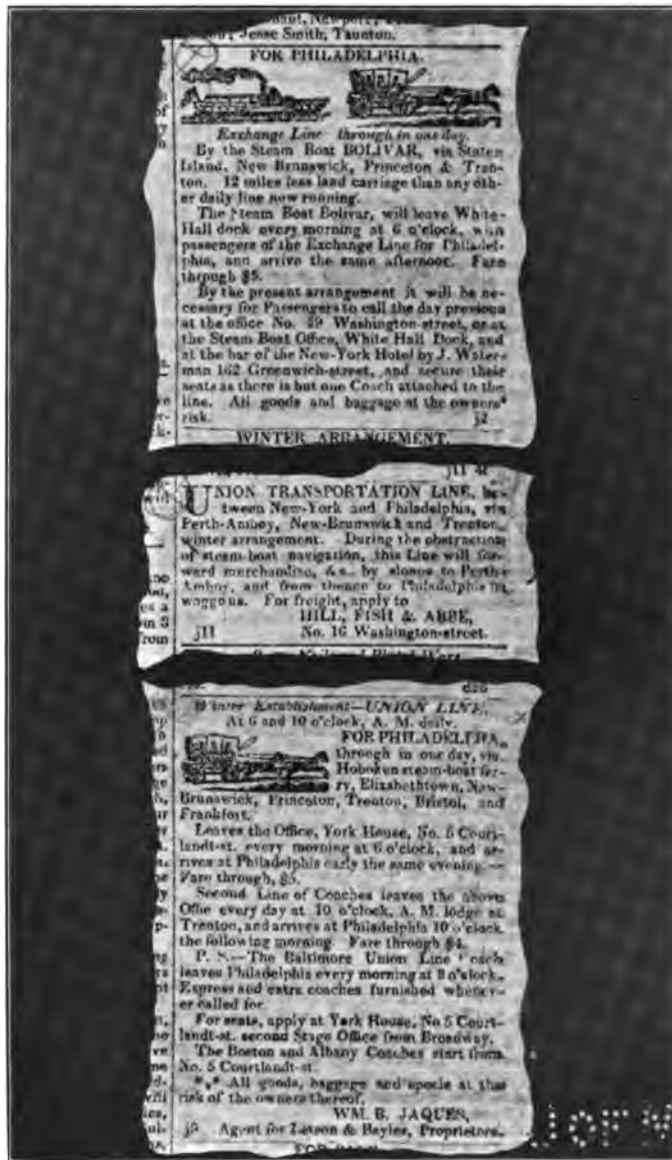 Jesse Smith, Taunton.
FOR PHILADELPHIA.
Exchange Line through in one day.
By the Steam Boat BOLIVAR, via Staten
Island, New Brunswick, Princeton & Tren-
ton. 12 miles less land carriage than any oth-
er daily line now running.
The Steam Boat Bolivar, will leave White-
Hall dock every morning at 6 o'clock, with
passengers of the Exchange Line for Philadel-
phia, and arrive the same afternoon. Fare
through $5.
By the present arrangement it will be ne-
cessary for Passengers to call the day previous
at the office No. 29 Washington-street, or at
the Steam Boat Office, White Hall Dock, and
at the bar of the New-York Hotel by J. Water-
man 162 Greenwich-street, and secure their
seats as there is but one Coach attached to the
line. All goods and baggage at the owners'
risk. j2
WINTER ARRANGEMENT.
j11 4t
UNION TRANSPORTATION LINE, be-
tween New-York and Philadelphia, via
Perth-Amboy, New-Brunswick and Trenton,
winter arrangement. During the obstruction
of steam-boat navigation, this Line will for-
ward merchandise, &c. by sloops to Perth-
Amboy, and from thence to Philadelphia in
waggons. For freight, apply to
HILL, FISH & ABBE,
j11 No. 16 Washington-street.
d26
Winter Establishment—UNION LINE,
At 6 and 10 o'clock, A. M. daily.
FOR PHILADELPHIA,
through in one day, via
Hoboken steam-boat fer-
ry, Elizabethtown, New-
Brunswick, Princeton, Trenton, Bristol, and
Frankfort.
Leaves the Office, York House, No. 5 Court-
landt-st. every morning at 6 o'clock, and ar-
rives at Philadelphia early the same evening.—
Fare through, $5.
Second Line of Coaches leaves the above
Offie every day at 10 o'clock, A. M. lodge at
Trenton, and arrives at Philadelphia 10 o'clock
the following morning. Fare through $4.
P. S.—The Baltimore Union Line Coach
leaves Philadelphia every morning at 8 o'clock.
Express and extra coaches furnished whenev-
er called for.
For seats, apply at York House, No 5 Court-
landt-st. second Stage Office from Broadway.
The Boston and Albany Coaches start from
No. 5 Courtlandt-st.
*,* All goods, baggage and specie at the
risk of the owners thereof.
WM. B. JAQUES,
j5 Agent for Letson & Bayles, Proprietors.